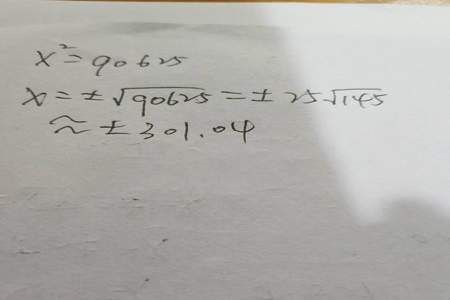 x²=90625
x=±√90625=±25√145
≈±301.04